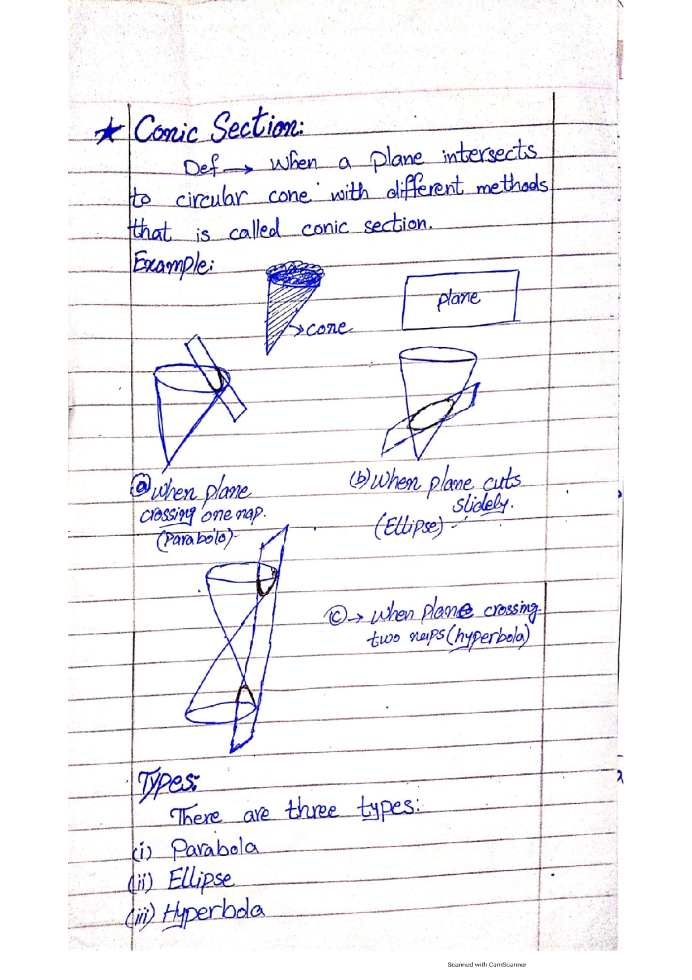 ★ Conic Section:
Def → When a plane intersects
to circular cone with different methods
that is called conic section.
Example:
plane
→ cone
(a) When plane
crossing one nap.
(Parabola)
(b) When plane cuts
slidely.
(Ellipse)
(c) → When plane crossing
two naps (hyperbola)
Types:
There are three types:
(i) Parabola
(ii) Ellipse
(iii) Hyperbola
Scanned with CamScanner